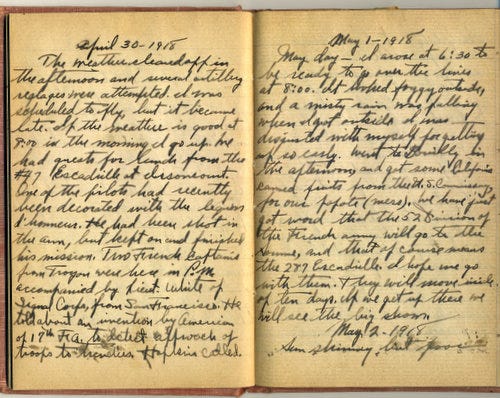 April 30-1918
The weather cleared off in
the afternoon and several artillery
reglages were attempted. I was
scheduled to fly, but it became
late. If the weather is good at
8:00 in the morning I go up. We
had guests for lunch from the
#47 Escadrille at
One of the pilots had recently
been decorated with the Legion
d'honneur. He had been shot in
the arm, but kept on and finished
his mission. Two French Captains
from Troyon were here in P.M.
accompanied by Lieut. White of
Signal Corps, from San Francisco. He
told about an invention by American
of 17th F.A. to detect approach of
troops to trenches. Hopkins called.
May 1-1918
May day - I arose at 6:30 to
be ready to go over the lines
at 8:00. It looked foggy outside,
and a misty rain was falling
when I got outside. I was
disgusted with myself for getting
up so early. Went to Souilly in
the afternoon and got some California
canned fruits from the U.S. Commissary
for our popote (mess). We have just
got word that the 52 Division of
the French army will go to the
Somme, and that of course means
the 287 Escadrille. I hope we go
with them. They will move inside
of ten days. If we get up there we
will see the big show.
May 2-1918
Sun shining, but poor